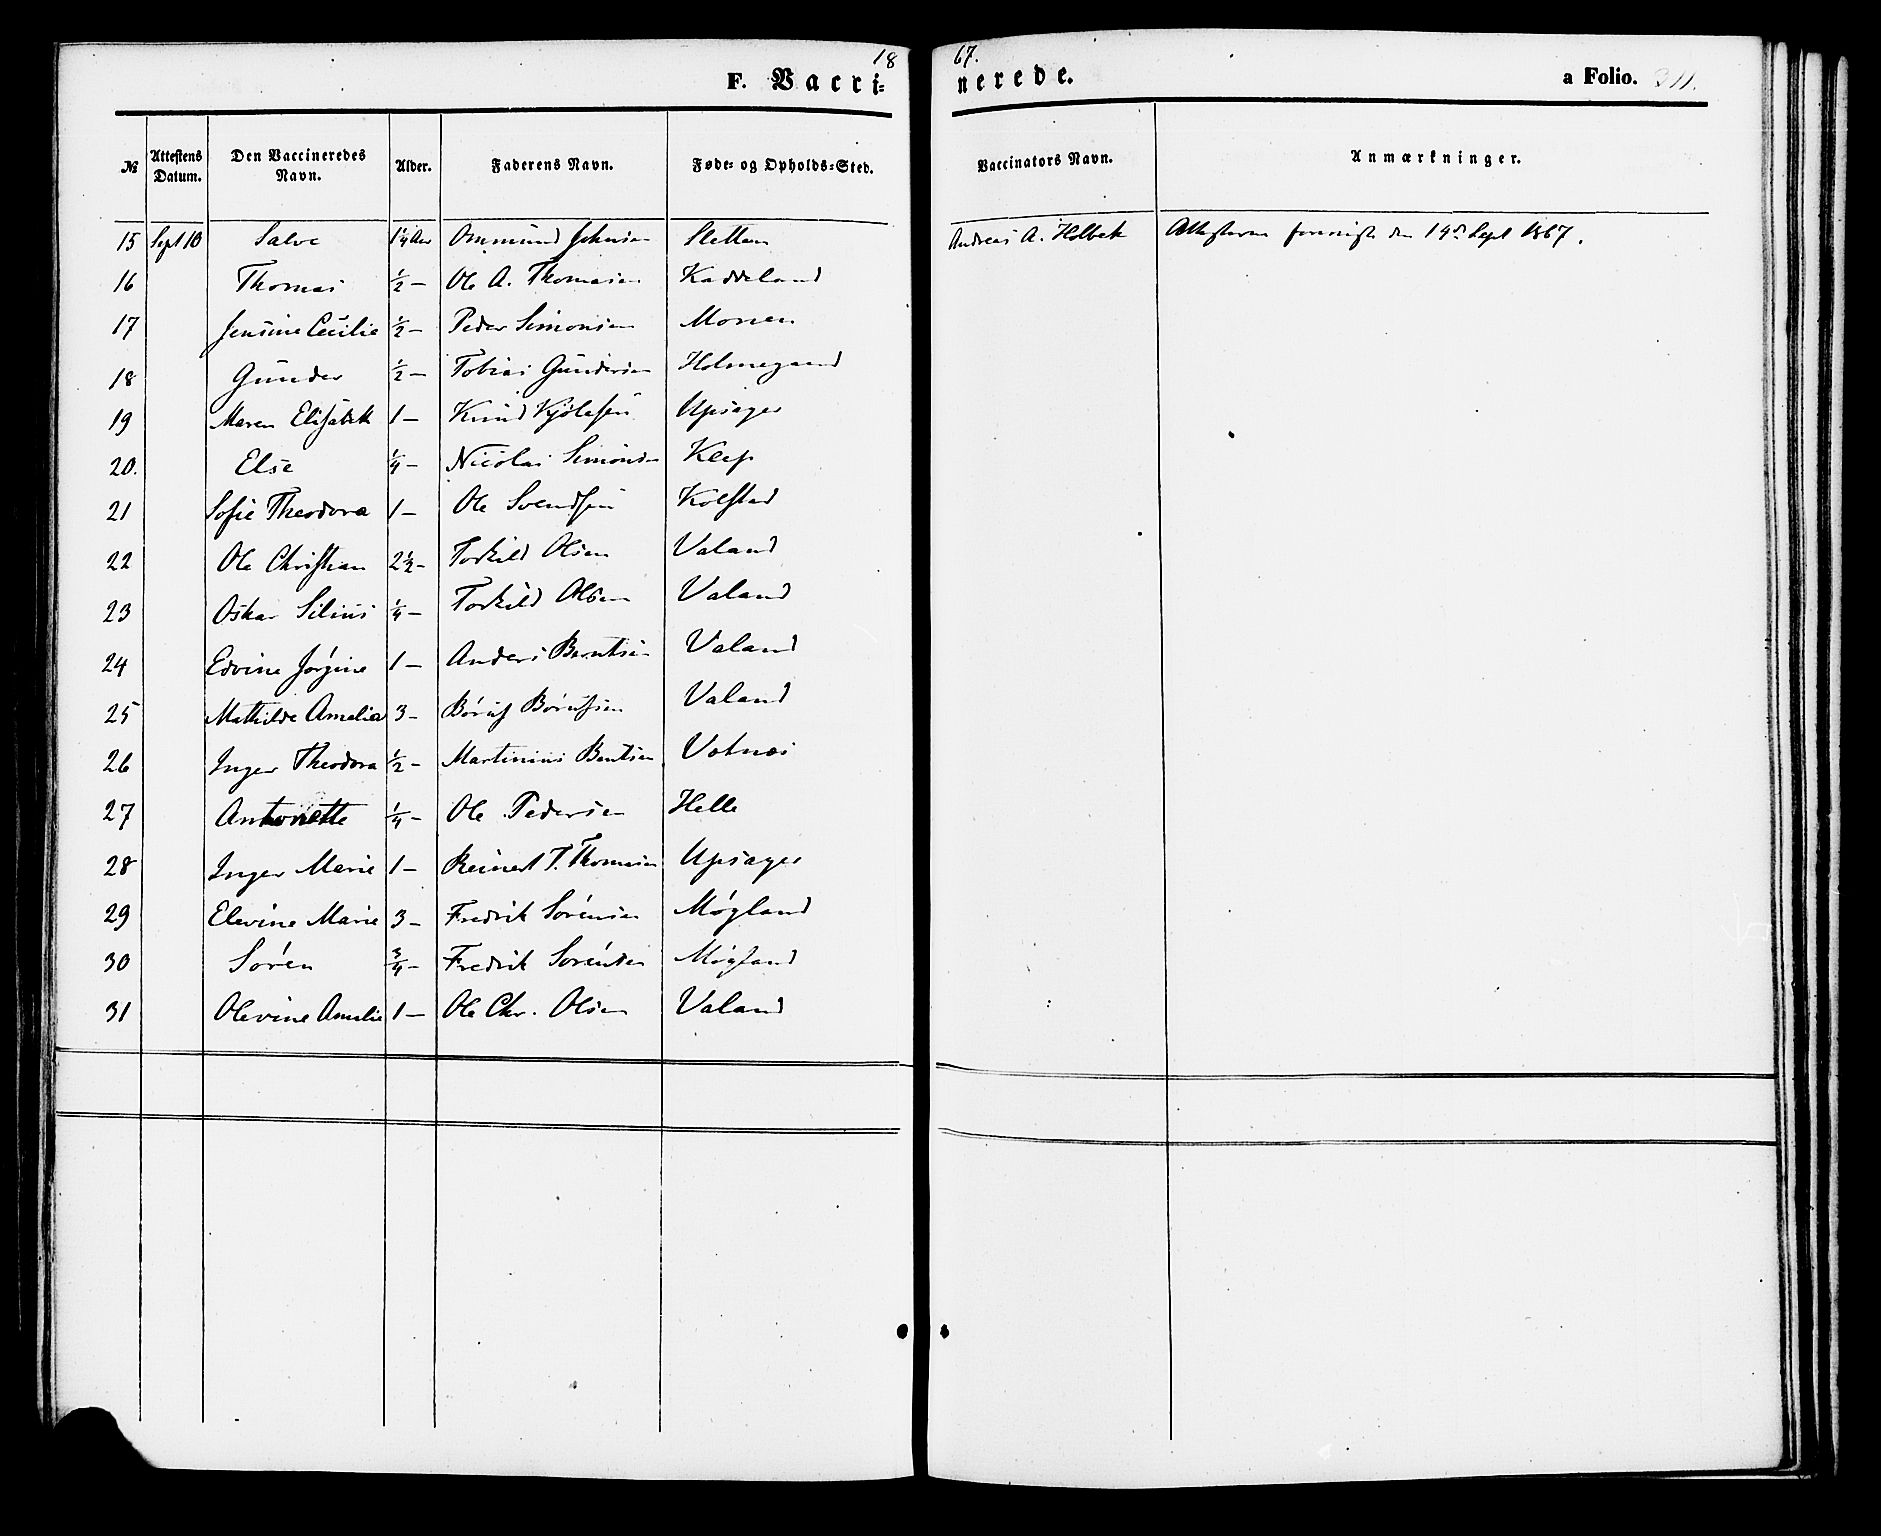 1867.
F. Vaccinerede. a Folio. 311.
№ Attestens Datum. Den Vaccineredes Navn. Alder. Faderens Navn. Føde- og Opholds-Sted. Vaccinators Navn. Anmærkninger.
15 Sept 10 Salve 1¼ Aar Ommund Johnsen Sletten Andreas A. Holbek Attesterne den 14de Sept 1867.
16 Thomas ½ – Ole A. Thomasen Kaddeland
17 Jensine Cecilie ½ – Peder Simonsen Monen
18 Gunder ½ – Tobias Gundersen Holmegaard
19 Maren Elisabeth 1 – Knud Kjølesen Upsager
20. Else ¼ – Nicolai Simonsen Kleep
21 Sofie Theodora 1 – Ole Svendsen Kolstad
22 Ole Christian 2½ – Torkild Olsen Valand
23 Oskar Silius ¼ – Torkild Olsen Valand
24 Edvine Jørgine 1 – Anders Berntsen Valand
25 Mathilde Amalia 3 – Børuf Børufsen Valand
26 Inger Theodora ½ – Martinius Bentsen Votnæs
27 Antonette ¼ – Ole Pedersen Helle
28 Inger Marie 1 – Reinert T. Thomasen Upsager
29 Elevine Marie 3 – Fredrik Sørensen Møgland
30 Søren ¾ – Fredrik Sørensen Møgland
31 Olevine Amalie 1 – Ole Chr. Olsen Valand